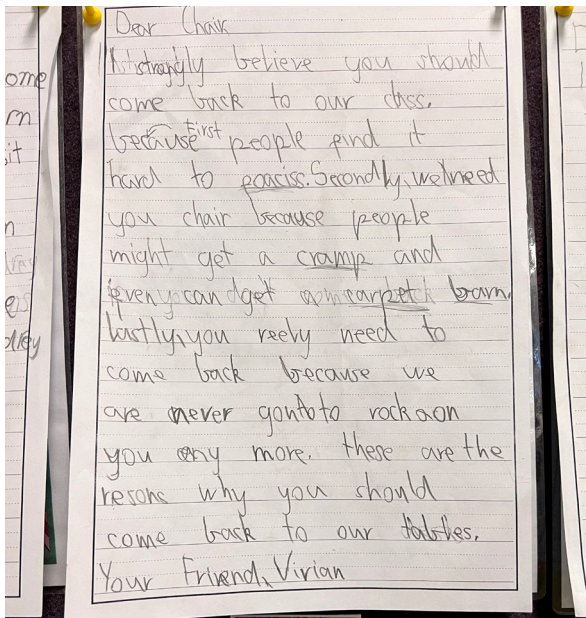 Dear Chair
I strongly believe you should
come back to our class.
because First people find it
hard to foaciss. Secondly, we need
you chair because people
might get a cramp and
even can get carpet barn.
Lastly, you reely need to
come back because we
are never gon to rock on
you any more. these are the
resons why you should
come back to our tables.
Your Friend, Virian
ome
rn
it
n